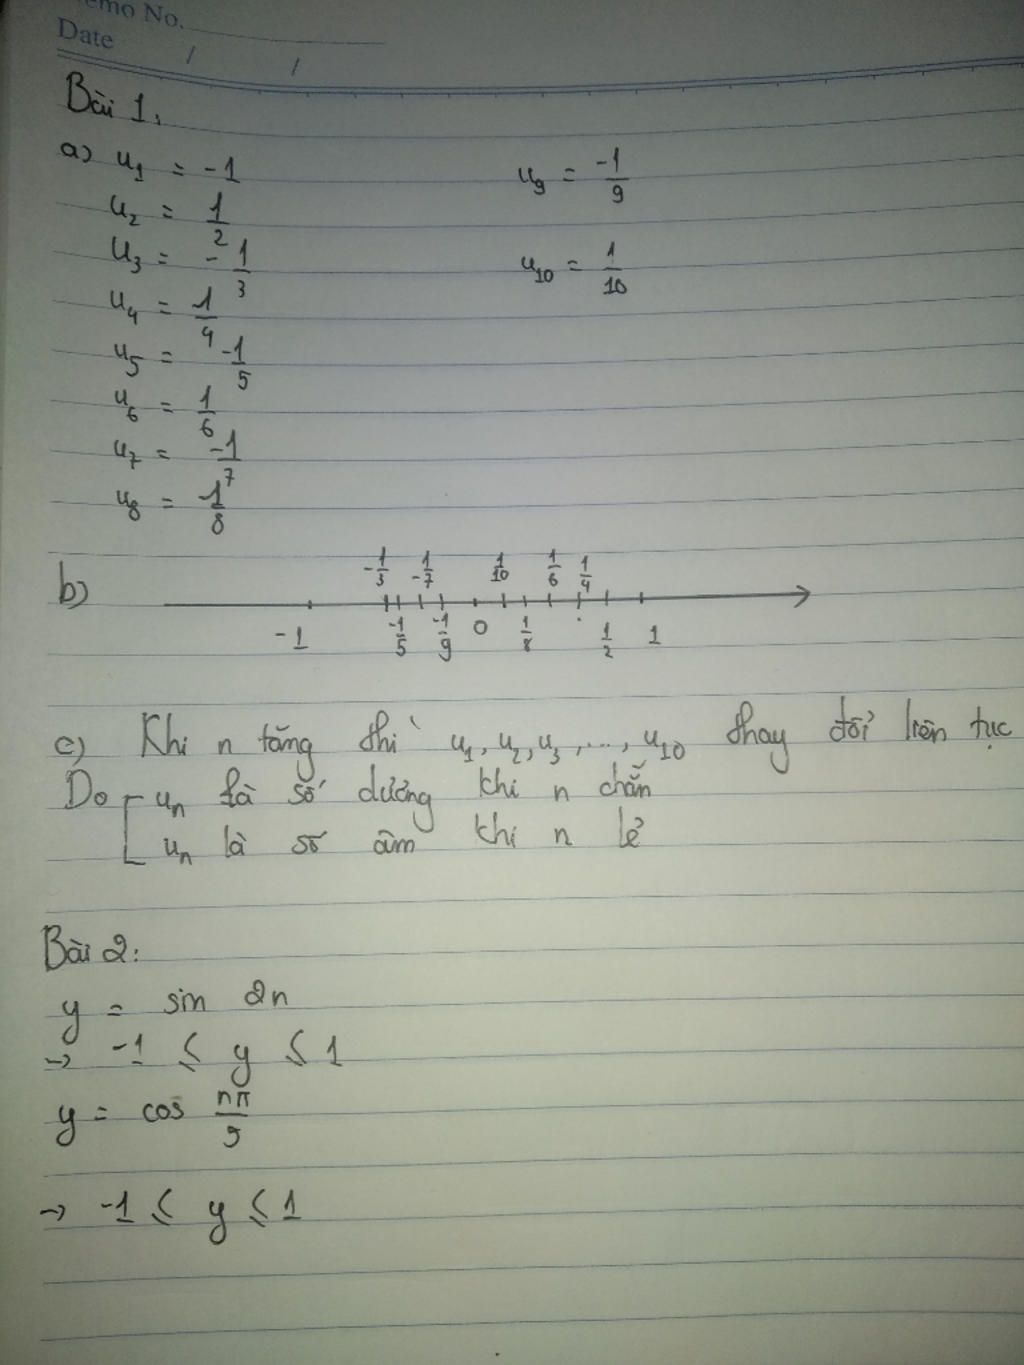 Memo No.
Date / /
Bài 1,
a) u₁ = -1
u₂ = 1/2
u₃ = -1/3
u₄ = 1/4
u₅ = -1/5
u₆ = 1/6
u₇ = -1/7
u₈ = 1/8
u₉ = -1/9
u₁₀ = 1/10
b)
-1/3 -1/7 1/10 1/6 1/4
-1 -1/5 -1/9 0 1/8 1/2 1
c) Khi n tăng thì u₁, u₂, u₃, ..., u₁₀ thay đổi liên tục
Do [ uₙ là số dương khi n chẵn
uₙ là số âm khi n lẻ
Bài 2:
y = sin 2n
→ -1 ≤ y ≤ 1
y = cos nπ/9
→ -1 ≤ y ≤ 1